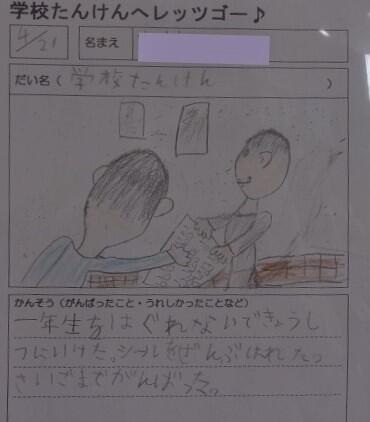 学校たんけんへレッツゴー♪
4/21 名まえ
だい名（学校たんけん）
かんそう（がんばったこと・うれしかったことなど）
一年生をはぐれないできょうし
つにいけた。シールをぜんぶはれたっ
さいごまでがんばった。